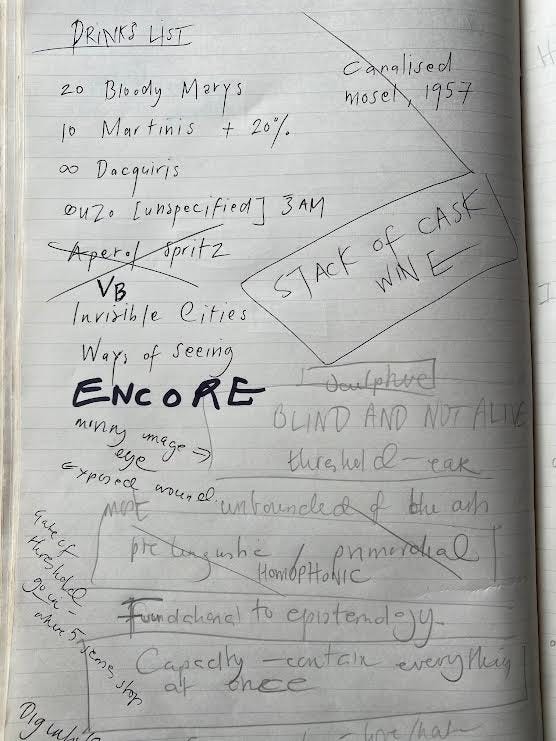 DRINKS LIST
Canalised
mosel, 1957
20 Bloody Marys
10 Martinis + 20%
∞ Dacquiris
OUZO [unspecified] 3AM
Aperol Spritz
VB
STACK OF CASK
WINE
Invisible Cities
Ways of Seeing
ENCORE
image
eye
Exposed wound
BLIND AND NOT ALIVE
threshold - ear
unbounded of the
prelinguistic / primordial
HOMOPHONIC
Foundational to epistemology
Capacity - contain everything
at once
Gate of
threshold
go in -
where 5 senses stop